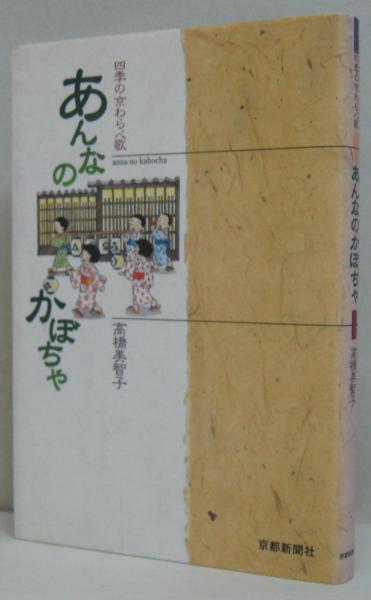 四季の京わらべ歌
あんなの
かぼちゃ
anna no kabocha
高橋美智子
京都新聞社
四季の京わらべ歌
あんなのかぼちゃ
高橋美智子
京都新聞社